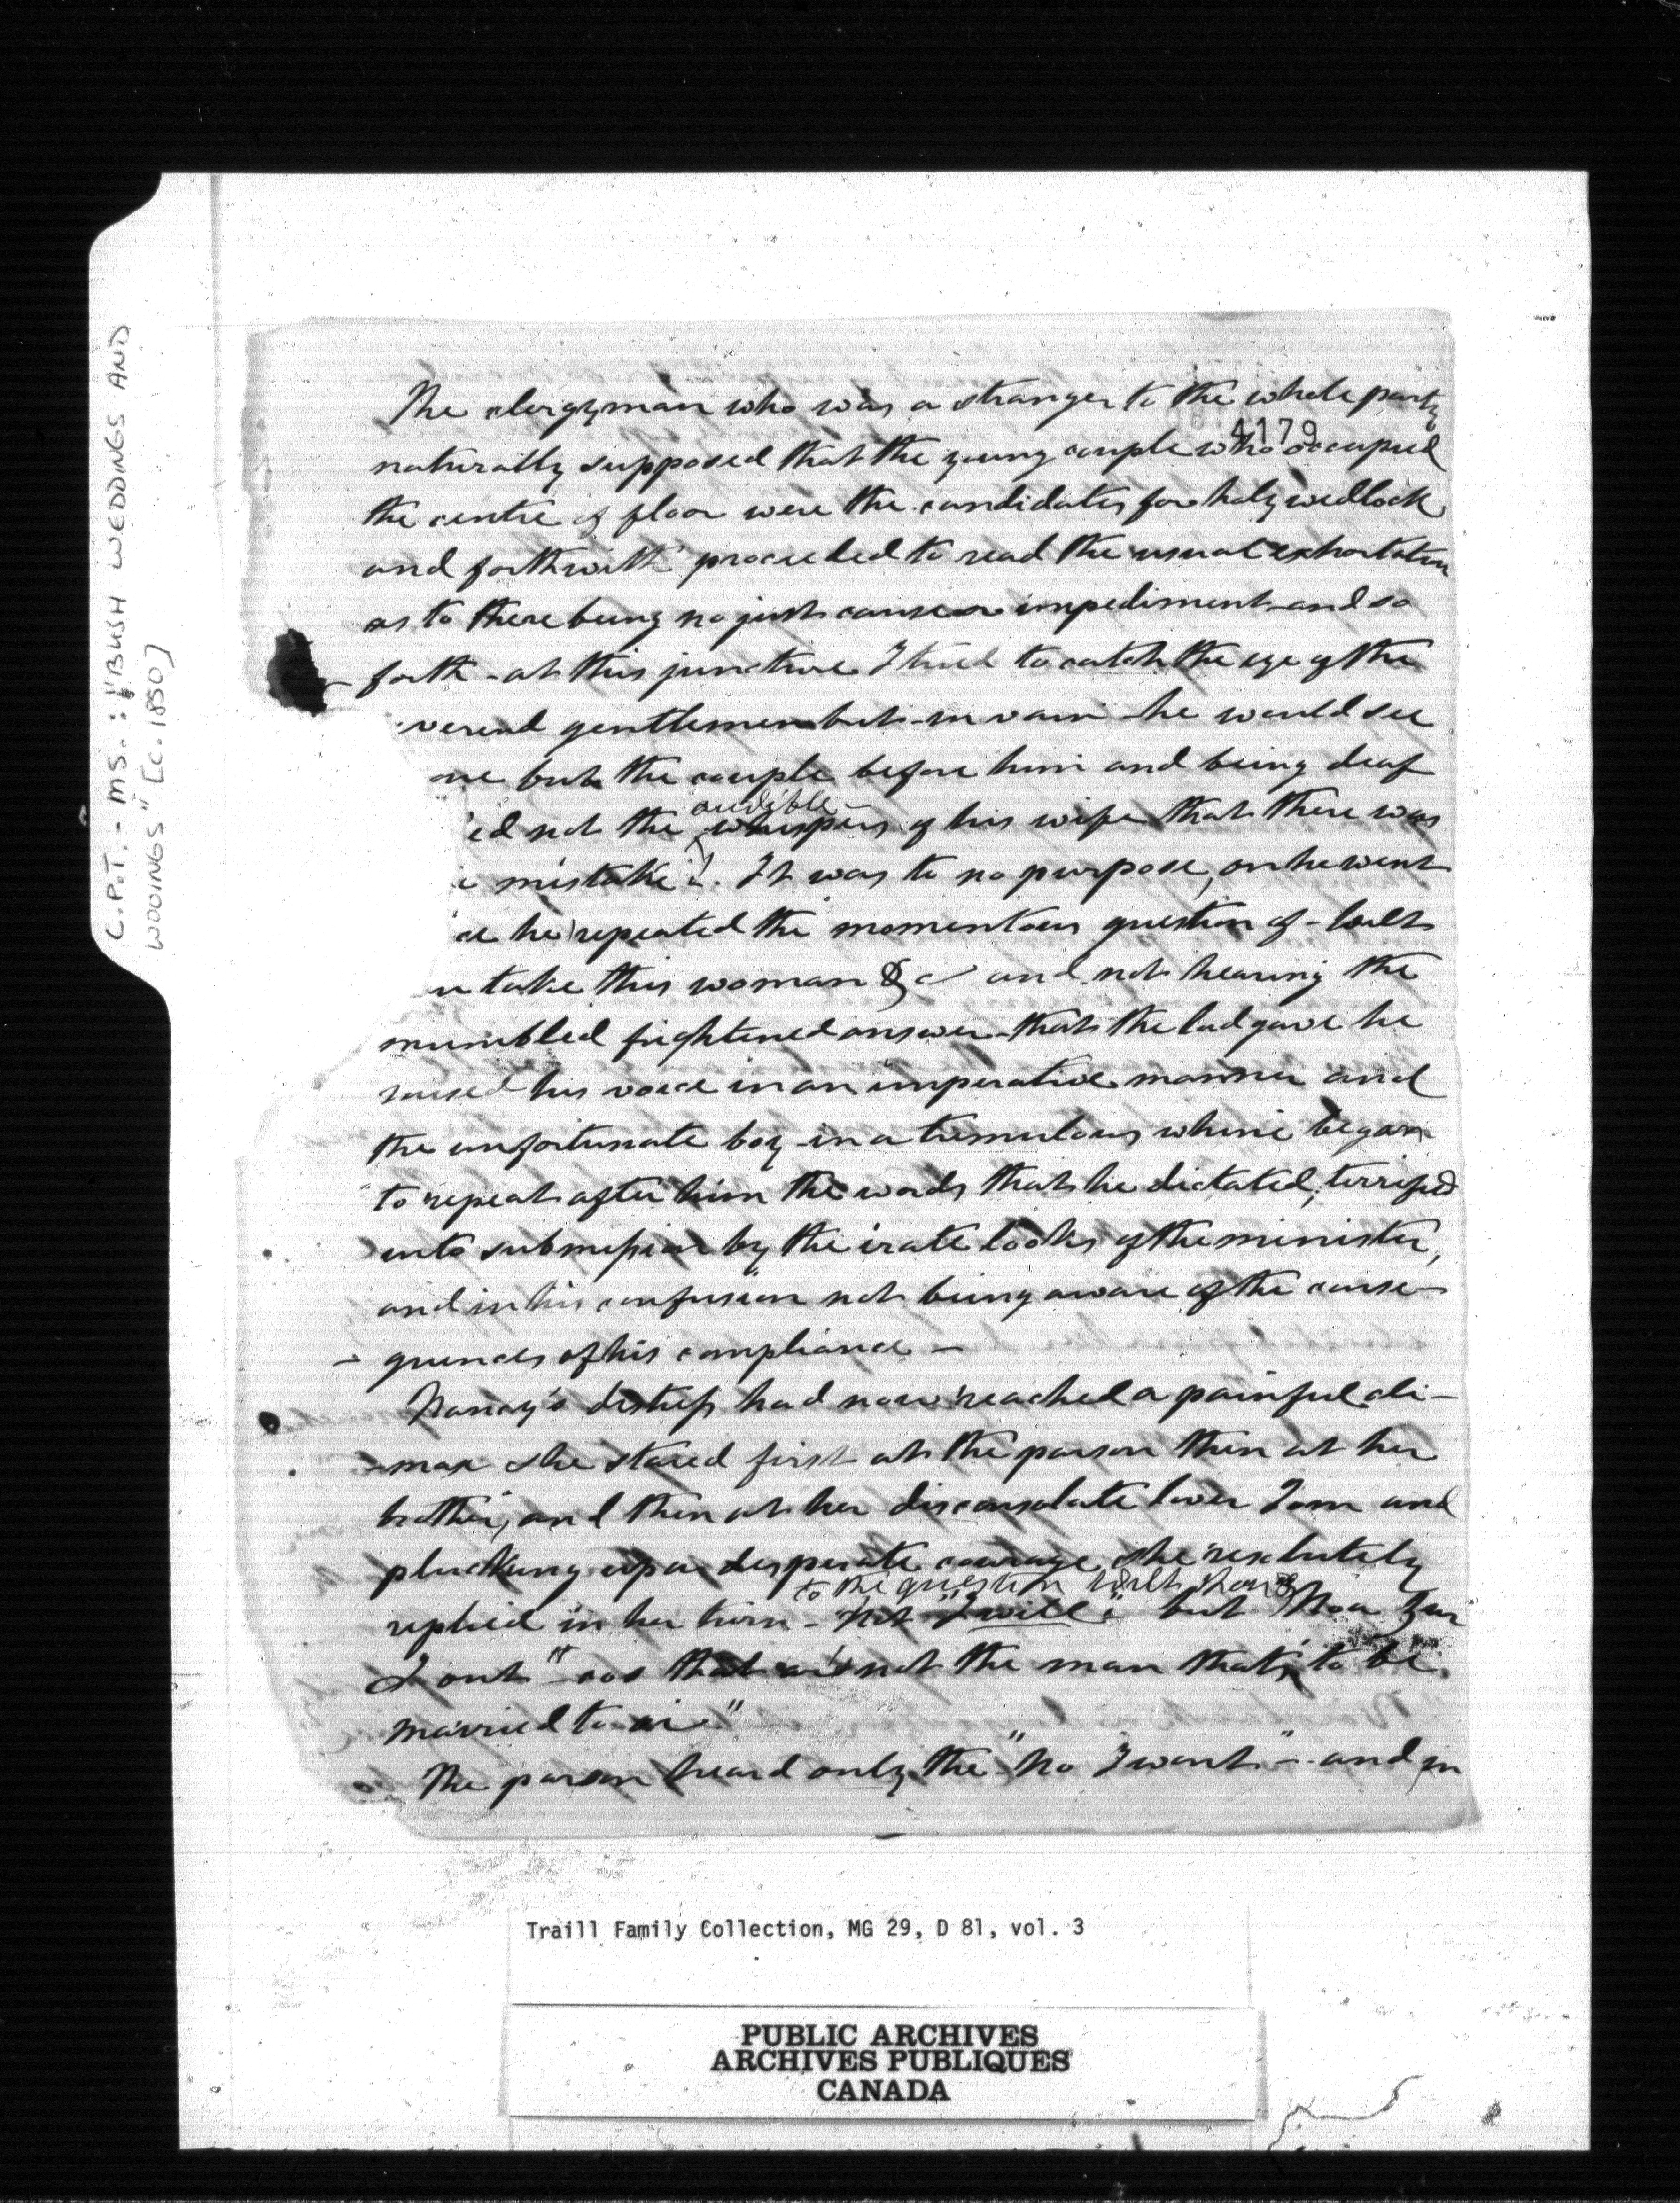 C.P.T. - MS. : "BUSH WEDDINGS AND
WOOINGS" [c. 1850]
4179
The clergyman who was a stranger to the whole party
naturally supposed that the young couple who occupied
the centre of floor were the candidates for holy wedlock
and forthwith proceeded to read the usual exhortation
as to there being no just cause or impediment and so
forth - at this juncture I tried to catch the eye of the
verend gentlemen but in vain - he would see
one but the couple before him and being deaf
ed not the audible whispers of his wife that there was
mistake. It was to no purpose, on he went
ce he repeated the momentous question of - wilt
u take this woman &c and not hearing the
mumbled frightened answer that the lad gave he
raised his voice in an imperative manner and
the unfortunate boy in a tremulous whine began
to repeat after him the words that he dictated, terrified
into submission by the irate looks of the minister,
and in his confusion not being aware of the conse-
- quences of his compliance -
Nancy's distress had now reached a painful cli-
-max she stared first at the parson then at her
brother, and then at her disconsolate lover Tom and
plucking up a desperate courage she resolutely
to the question wilt thou
replied in her turn - not "I will" but Noa Zur
I ont" cos that not the man that's to be
married to
The parson heard only the "No I wont" - and in
Traill Family Collection, MG 29, D 81, vol. 3
PUBLIC ARCHIVES
ARCHIVES PUBLIQUES
CANADA